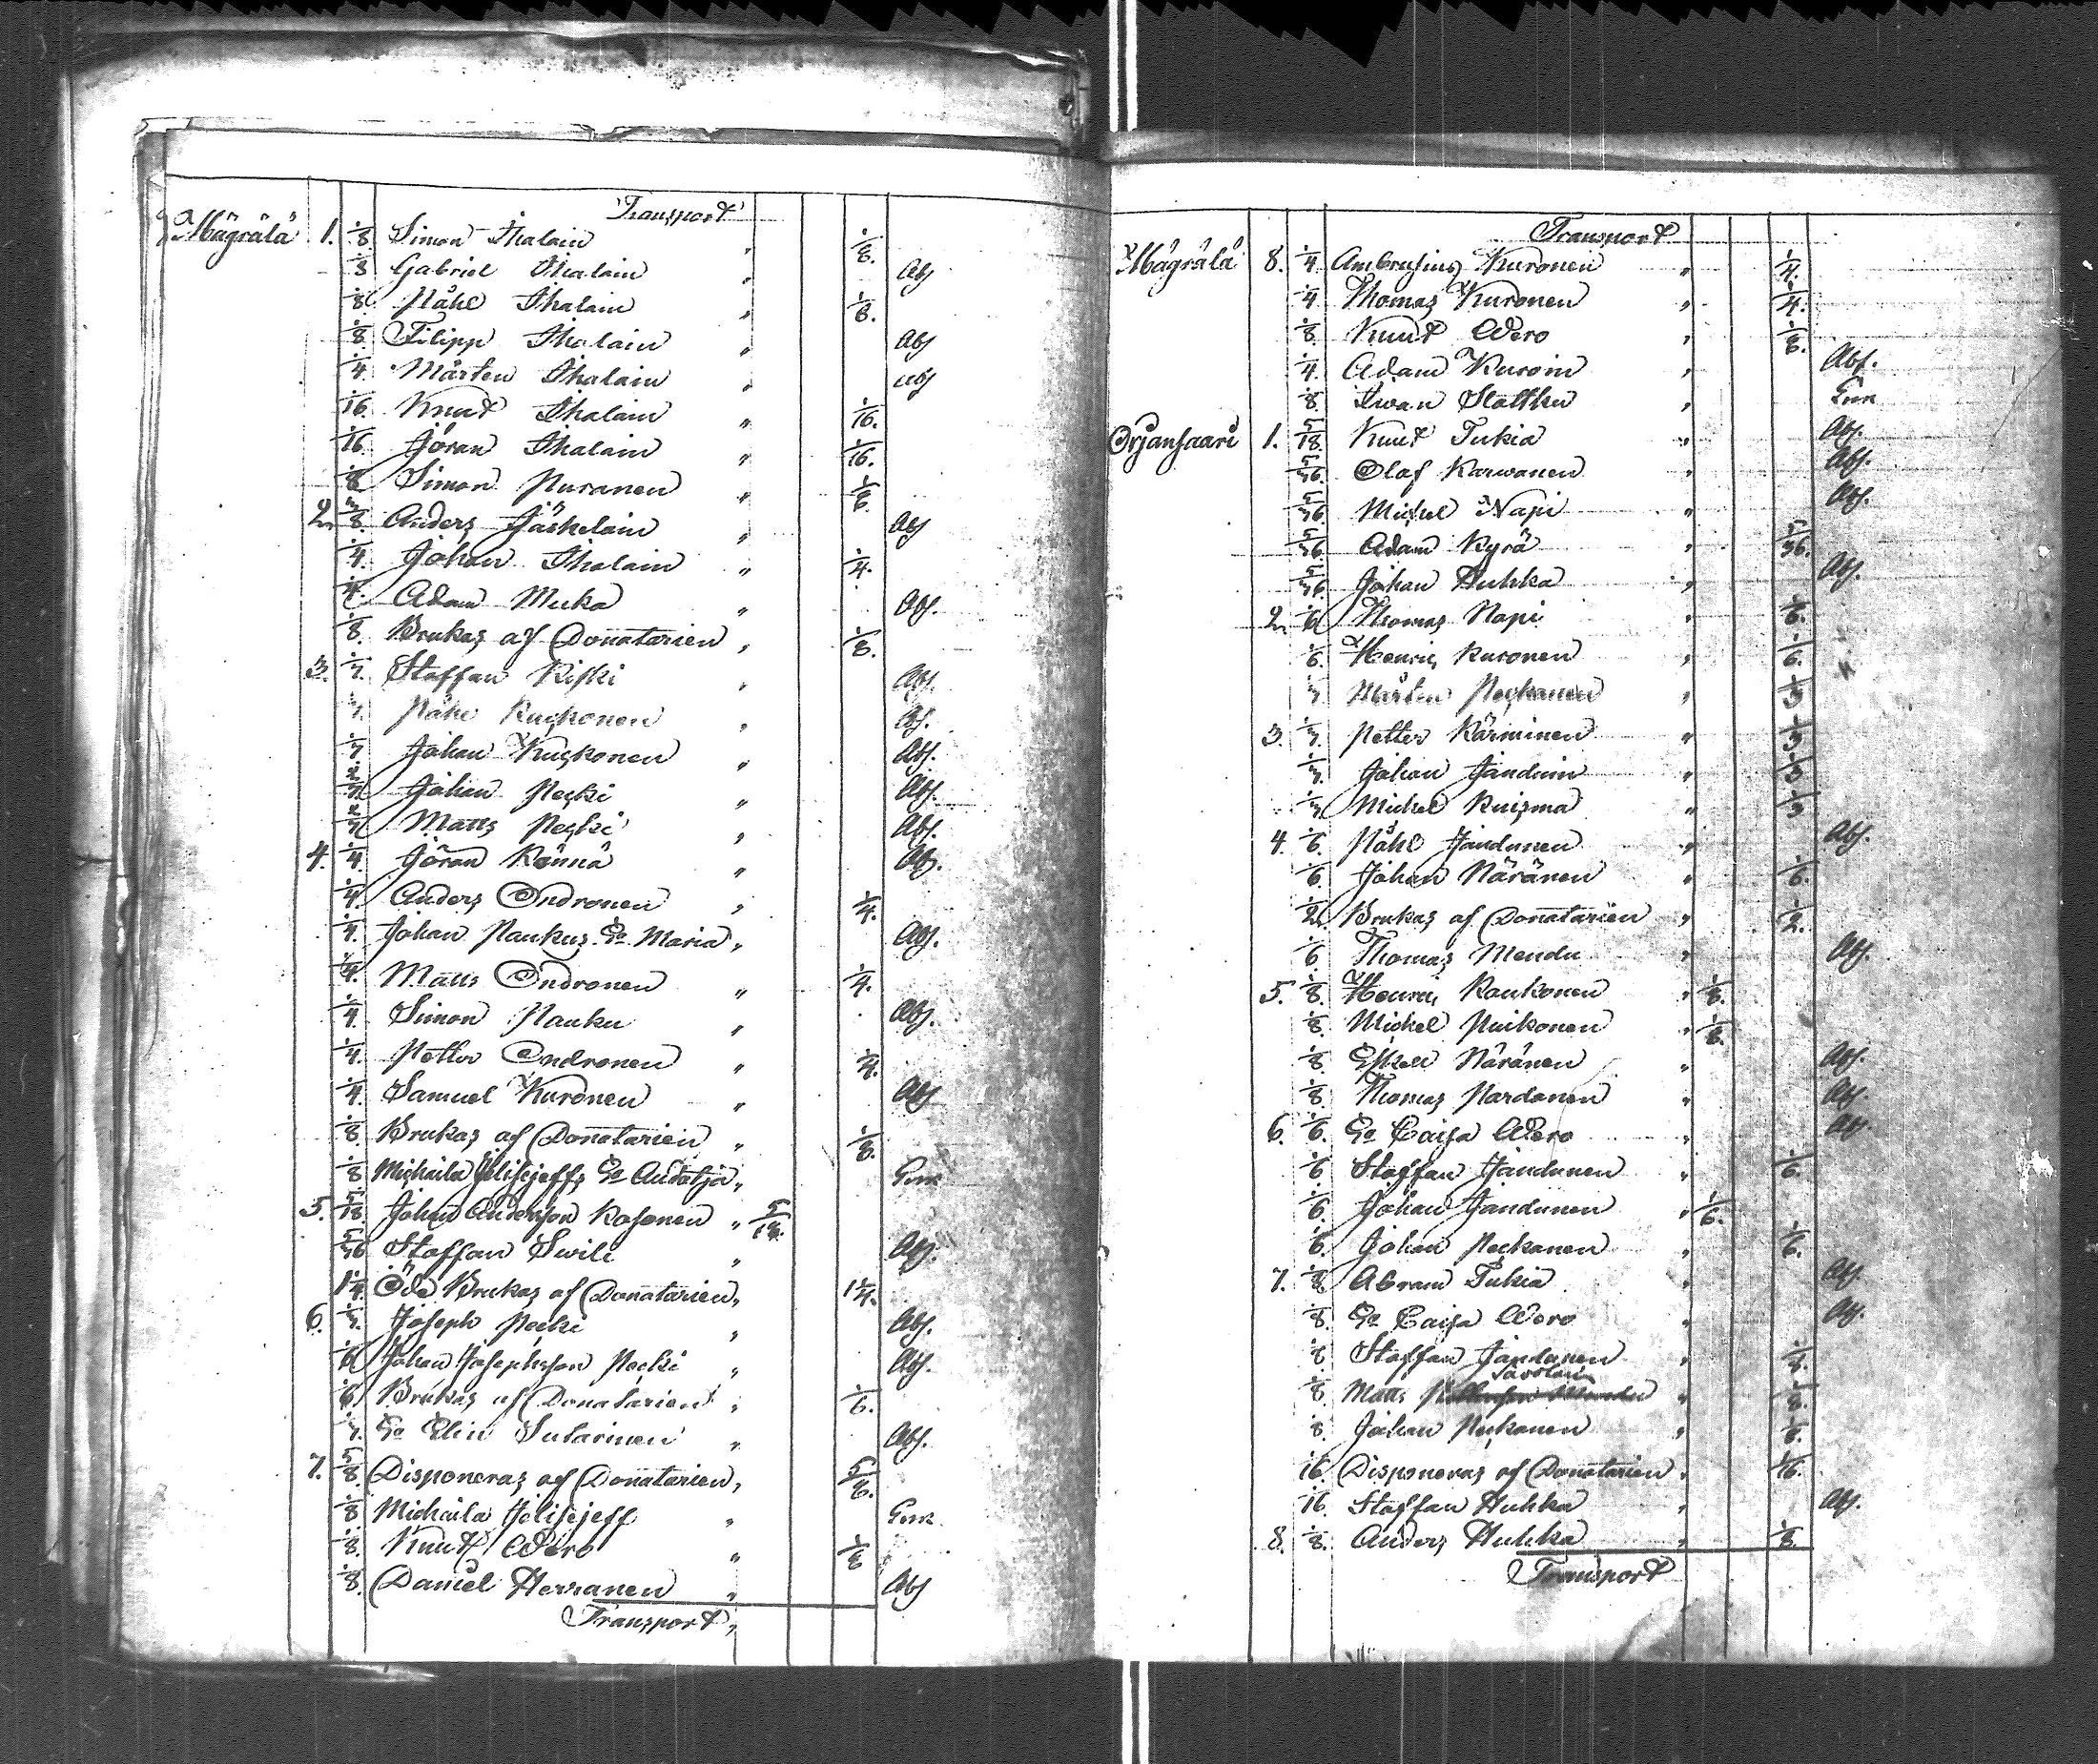 Transport
Mägrälä 1. 1/8 Simon Ihalain " 1/8.
1/8 Gabriel Ihalain " Abs
1/8 Påhl Ihalain " 1/8.
1/8 Filipp Ihalain " Abs
1/4. Mårten Ihalain " Abs
1/16. Knut Ihalain " 1/16.
1/16 Jöran Ihalain " 1/16.
1/8 Simon Puranen " 1/8.
2. /8. Anders Jäskelain " Abs
1/4. Johan Ihalain " 1/4.
1/4. Adam Muka " Abs.
1/8. Brukas af Donatarien " 1/8.
3. Staffan Kiski " Abs.
Påhl Kuckonen " Abs.
Johan Kuckonen " Abs.
Johan Pecki " Abs.
Matts Pecki " Abs.
4. 1/4. Jöran Könnä " Abs.
1/4. Anders Ondronen " 1/4.
1/4. Johan Paukus Ea Maria " Abs.
1/4. Matts Ondronen " 1/4.
1/4. Simon Pauku " Abs.
1/4. Petter Ondronen " 1/4.
1/4. Samuel Kuronen " Abs
1/8. Brukas af Donatarien " 1/8.
1/8 Michaila Jelisejeffs Ea Audotja " Grek
5. 5/18. Johan Andersson Kosonen " 5/18.
5/36 Staffan Swili " Abs.
1 1/4. Öde Brukas af Donatarien " 1 1/4.
6. Joseph Pecki " Abs.
1/6 Johan Josephsson Pecki " Abs.
1/6 Brukas af Donatarien " 1/6.
Ea Elin Sutarinen " Abs.
7. 5/8. Disponeras af Donatarien " 5/8.
1/8 Michaila Jelisejeff " Grek
1/8. Knut Wero " 1/8
1/8. Daniel Herranen " Abs
Transport "
Transport
Mägrälä 8. 1/4. Ambrusius Kuronen " 1/4.
1/4 Thomas Kuronen " 1/4.
1/8 Knut Wero " 1/8.
1/4. Adam Kuroin " Abs.
1/8. Iwan Slottku "
Orjansaari 1. 5/18. Knut Tukia " Abs.
5/36. Olaf Karwanen " Abs.
5/36 Michel Napi " Abs.
5/36. Adam Kyrä " 5/36.
5/36 Johan Huhka " Abs.
2. 1/6 Thomas Napi " 1/6.
1/6. Henric Kuronen " 1/6.
1/3 Mårten Peckanen " 1/3
3. 1/3. Petter Kärminen " 1/3
1/3. Johan Janduin " 1/3
1/3 Michel Kuisma " 1/3
4. 1/6. Påhl Jandunen " Abs.
1/6. Johan Näränen " 1/6.
1/2. Brukas af Donatarien " 1/2.
1/6 Thomas Mendu " Abs.
5. 1/8. Henric Kaukonen " 1/8.
1/8. Michel Puikonen " 1/8.
1/8. Eskell Näränen " Abs.
1/8. Thomas Pardanen " Abs.
6. 1/6. Ea Caisa Wero " Abs.
1/6 Staffan Jandunen " 1/6.
1/6. Johan Jandunen " 1/6.
1/6. Johan Peckanen " 1/6.
7. 1/8. Abram Tukia " Abs.
1/8. Ea Caisa Wero " Abs.
1/8 Staffan Jandunen " 1/8.
Savolain
1/8. Matts " 1/8.
1/8. Johan Peckanen " 1/8.
1/16. Disponeras af Donatarien " 1/16.
1/16. Staffan Huhka " Abs.
8. 1/8. Anders Huhka " 1/8.
Transport